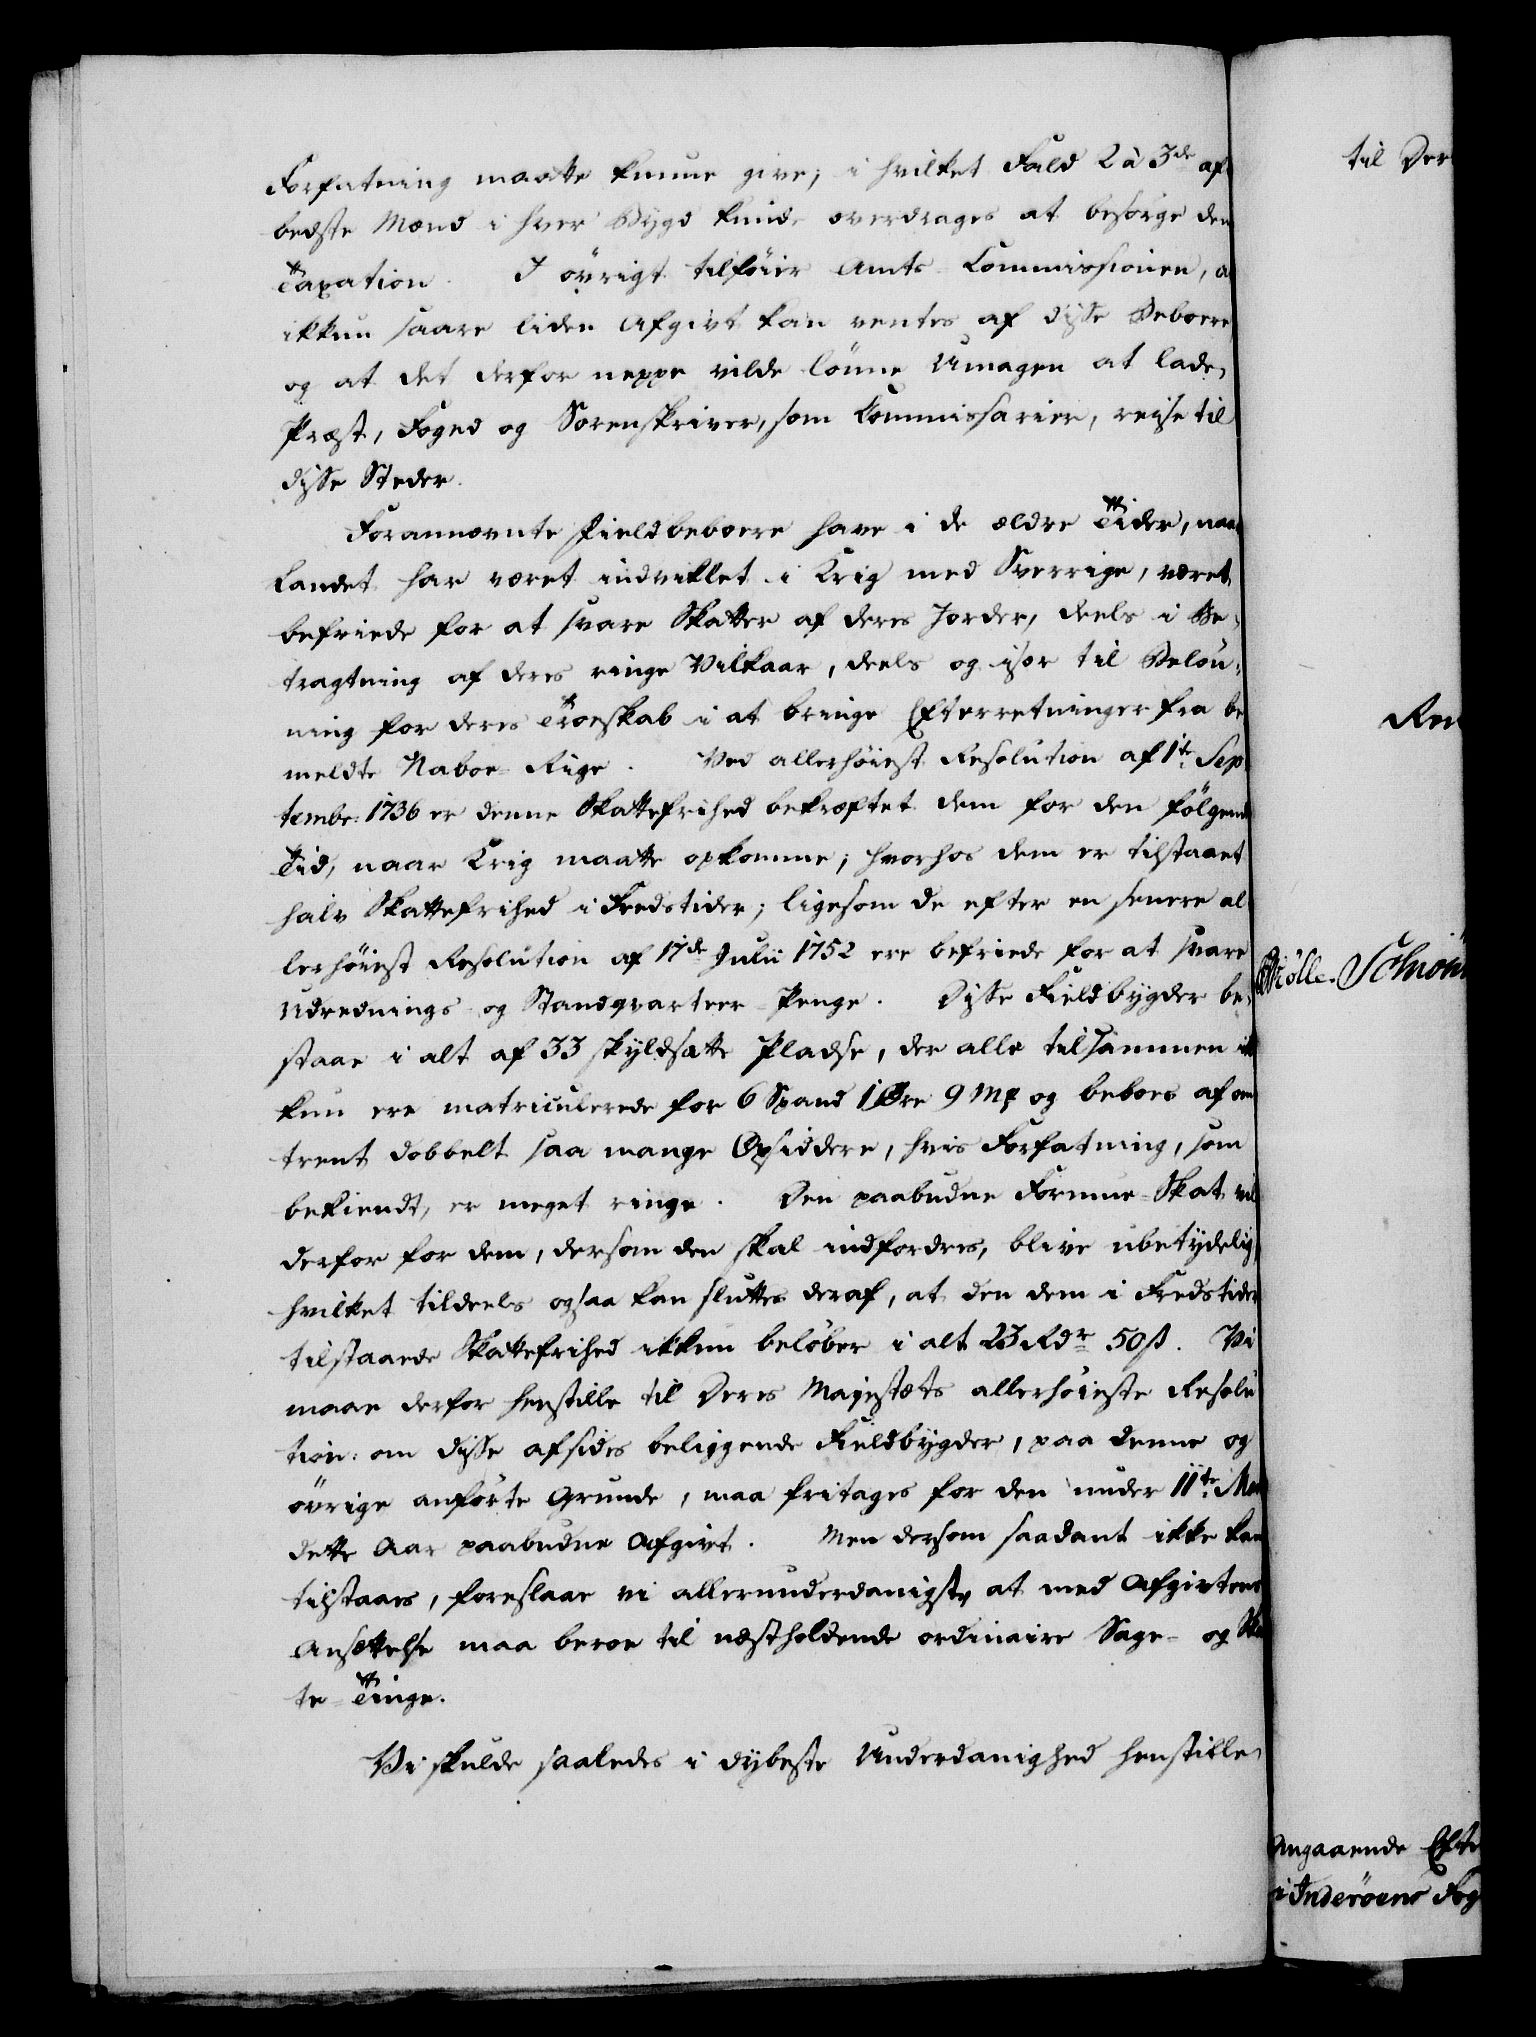 Forfatning maatte kunne give; i hvilket Fald 2 à 3de af
bedste Mænd i hver Bÿgd kunde overdrages at besørge den
Taxation. I øvrigt tilføier Amts-Commissionen, a
ikkun saare liden Afgivt kan ventes af disse Beboere
og at det derfor neppe vilde lønne Umagen at lade
Præst, Foged og Sorenskriver, som Commissarier, reise til
disse Steder.
Forannævnte Fieldbeboere have i de ældre Tider, naar
Landet har været indviklet i Krig med Sverrige, været
befriede for at svare Skatter af deres Jorder, deels i Be-
tragtning af deres ringe Vilkaar, deels og især til Beløn-
ning for deres Troeskab i at bringe Efterretninger fra be
meldte Naboe-Rige. Ved allerhøiest Resolution af 1te Sep
tembr: 1736 er denne Skattefrihed bekræftet dem for den følgende
Tid, naar Krig maatte opkomme; hvorhos dem er tilstaaet
halv Skattefrihed i Fredstider; ligesom de efter en senere al
lerhøiest Resolution af 17de Julii 1752 ere befriede for at svare
Udrednings- og Standqvarteer-Penge. Disse Fieldbygder be-
staae i alt af 33 skyldsatte Pladse, der alle tilsammen ik
kun ere matriculerede for 6 Spand 1 Øre 9 Mk og beboes af om
trent dobbelt saa mange Opsiddere, hvis Forfatning, som
bekiendt, er meget ringe. Den paabudne Formue-Skat vil
derfor for dem, dersom den skal indfordres, blive ubetydelig,
hvilket tildeels ogsaa kan sluttes deraf, at den dem i Fredstider
tilstaaede Skattefrihed ikkun beløber i alt 23 Rdr 50 ß. Vi
maae derfor henstille til Deres Majestæts allerhøieste Resolu
tion: om disse afsides beliggende Fieldbygder, paa denne og
øvrige anførte Grunde, maa fritages for den under 11te Ma
dette Aar paabudne Afgivt. Men dersom saadant ikke kan
tilstaaes, foreslaae vi allerunderdanigst, at med Afgivtens
Ansættelse maa beroe til næstholdende ordinaire Sage- og Ska
te-Tinge.
Vi skulde saaledes i dybeste Underdanighed henstille
til Der
Ren
Mølle. Schiøn
Angaaende Eft
i Inderøens Fog